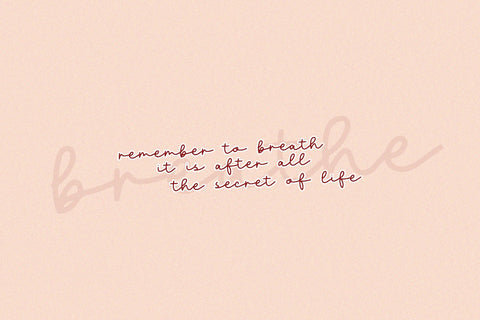 breathe
remember to breath
it is after all
the secret of life